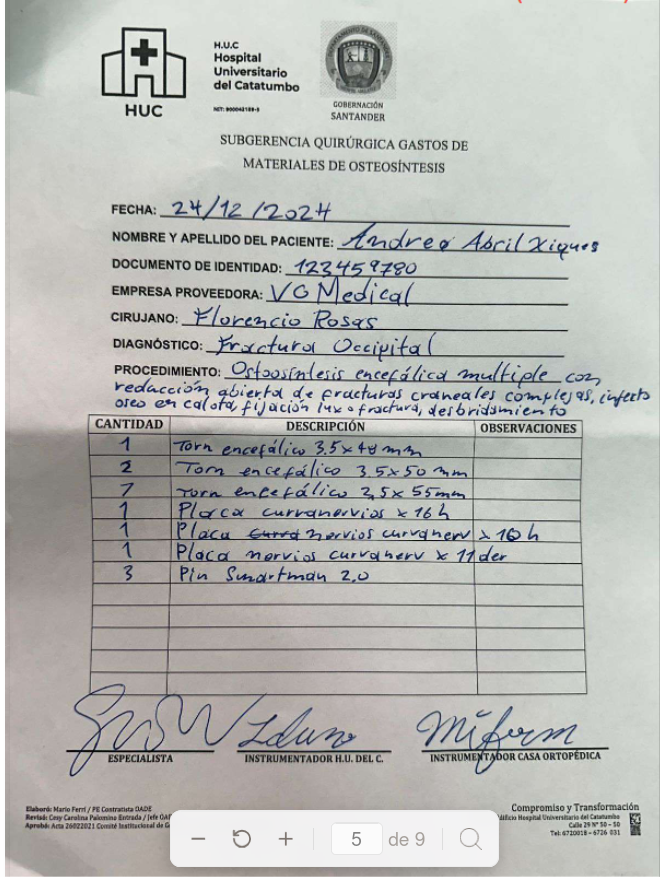 H.U.C
Hospital
Universitario
del Catatumbo
HUC
GOBERNACIÓN
SANTANDER
SUBGERENCIA QUIRÚRGICA GASTOS DE
MATERIALES DE OSTEOSÍNTESIS
FECHA: 24/12/2024
NOMBRE Y APELLIDO DEL PACIENTE: Andrea Abril Xiques
DOCUMENTO DE IDENTIDAD: 123459780
EMPRESA PROVEEDORA: VG Medical
CIRUJANO: Florencio Rosas
DIAGNÓSTICO: Fractura Occipital
PROCEDIMIENTO: Osteosíntesis encefálica multiple con
redacción abierta de fracturas craneales complejas, infecto
oseo en calota, fijación lux o fractura, desbridamiento
CANTIDAD DESCRIPCIÓN OBSERVACIONES
1 Torn encefálico 3.5 x 48 mm
2 Torn encefálico 3.5 x 50 mm
7 Torn encefálico 2,5 x 55mm
1 Placa curvanervios x 16 h
1 Placa nervios curvanerv x 10 h
1 Placa nervios curvanerv x 11 der
3 Pin Smartman 2,0
ESPECIALISTA INSTRUMENTADOR H.U. DEL C. INSTRUMENTADOR CASA ORTOPÉDICA
Elaboró: Mario Ferri / PE Contratista OADE
Revisó: Cesy Carolina Palomino Estrada / Jefe
Aprobó: Acta 26022021 Comité Institucional de
Compromiso y Transformación
Edificio Hospital Universitario del Catatumbo
Calle 29 Nº 50 – 50
Tel: 6720018 – 6726 031
5 de 9